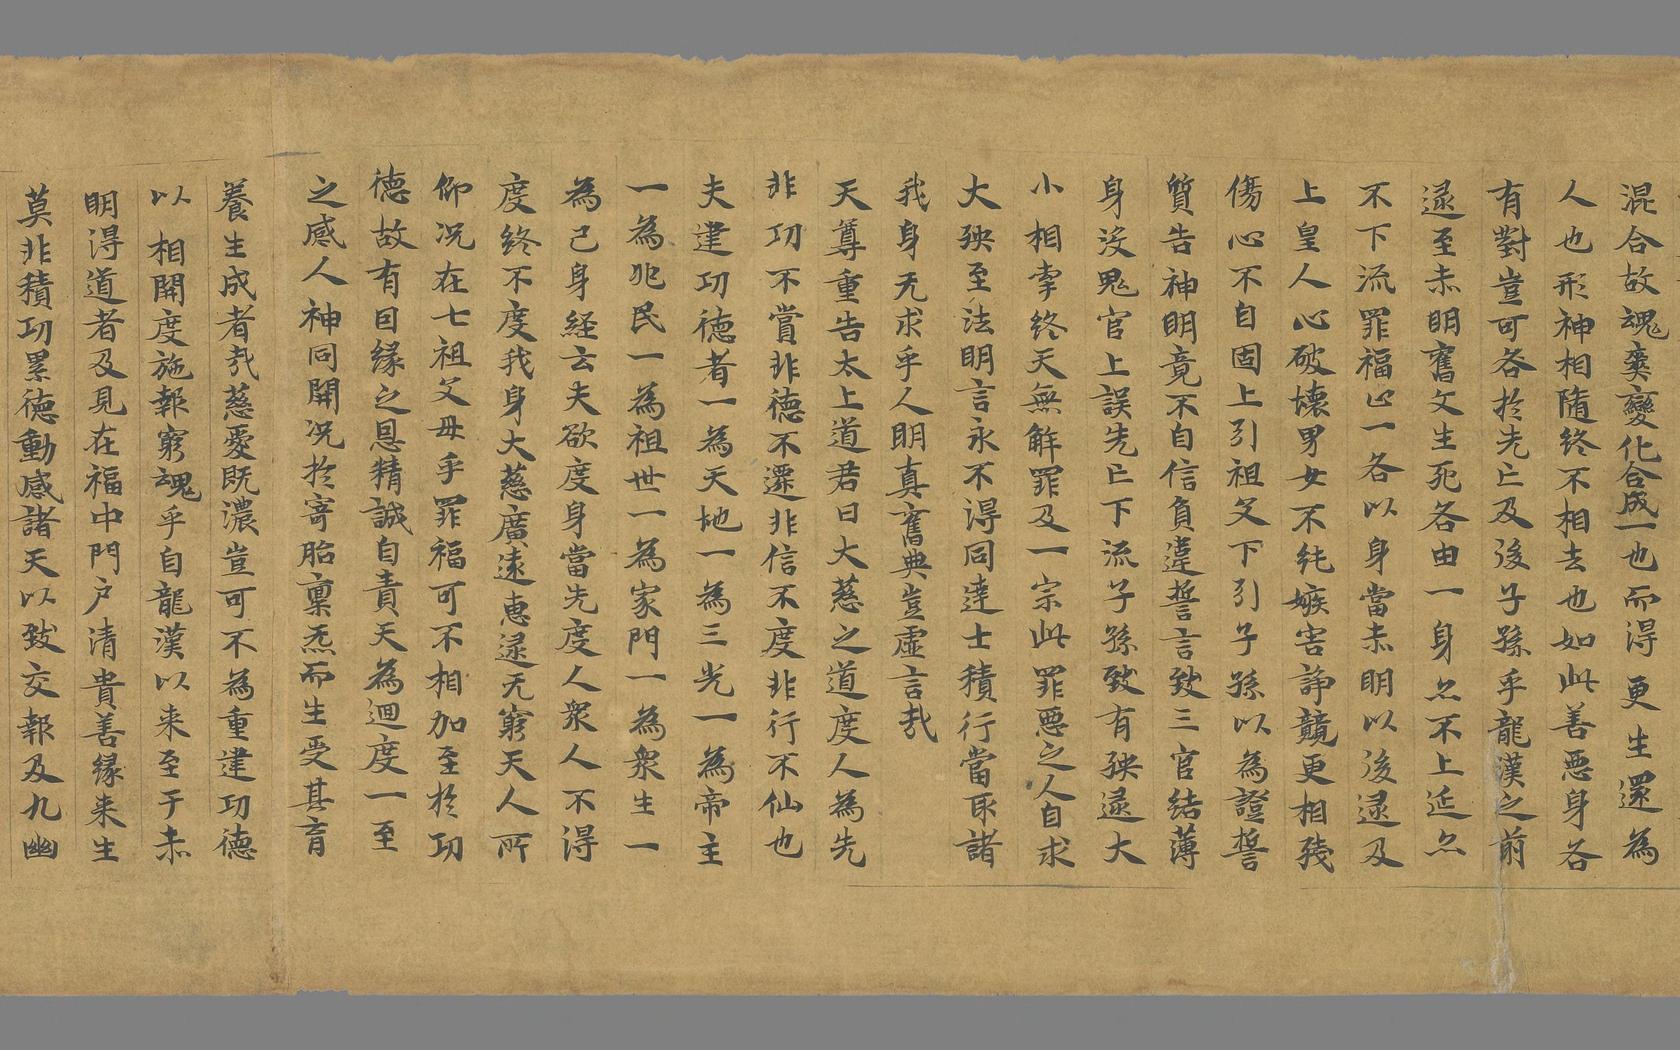 混合故魂爽變化合成一也而得更生還為
人也形神相隨終不相去也如此善惡身各
有對豈可各於先亡及後子孫乎龍漢之前
逮至赤明舊文生死各由一身亦不上延亦
不下流罪福止一各以身當赤明以後逮及
上皇人心破壞男女不純嫉害諍競更相殘
傷心不自固上引祖父下引子孫以為證誓
質告神明竟不自信負違誓言致三官結薄
身沒鬼官上誤先亡下流子孫致有殃逮大
小相牽終天無解罪及一宗此罪惡之人自求
大殃至法明言永不得同達士積行當取諸
我身无求乎人明真舊典豈虛言哉
天尊重告太上道君曰大慈之道度人為先
非功不賞非德不遷非信不度非行不仙也
夫建功德者一為天地一為三光一為帝主
一為兆民一為祖世一為家門一為衆生一
為己身經云夫欲度身當先度人衆人不得
度終不度我身大慈廣遠惠逮无窮天人所
仰况在七祖父母乎罪福可不相加至於功
德故有因緣之恩精誠自責天為迴度一至
之感人神同開况於寄胎稟炁而生受其育
養生成者哉慈愛既濃豈可不為重建功德
以相開度施報窮魂乎自龍漢以来至于赤
明得道者及見在福中門戶清貴善緣来生
莫非積功累德動感諸天以致交報及九幽